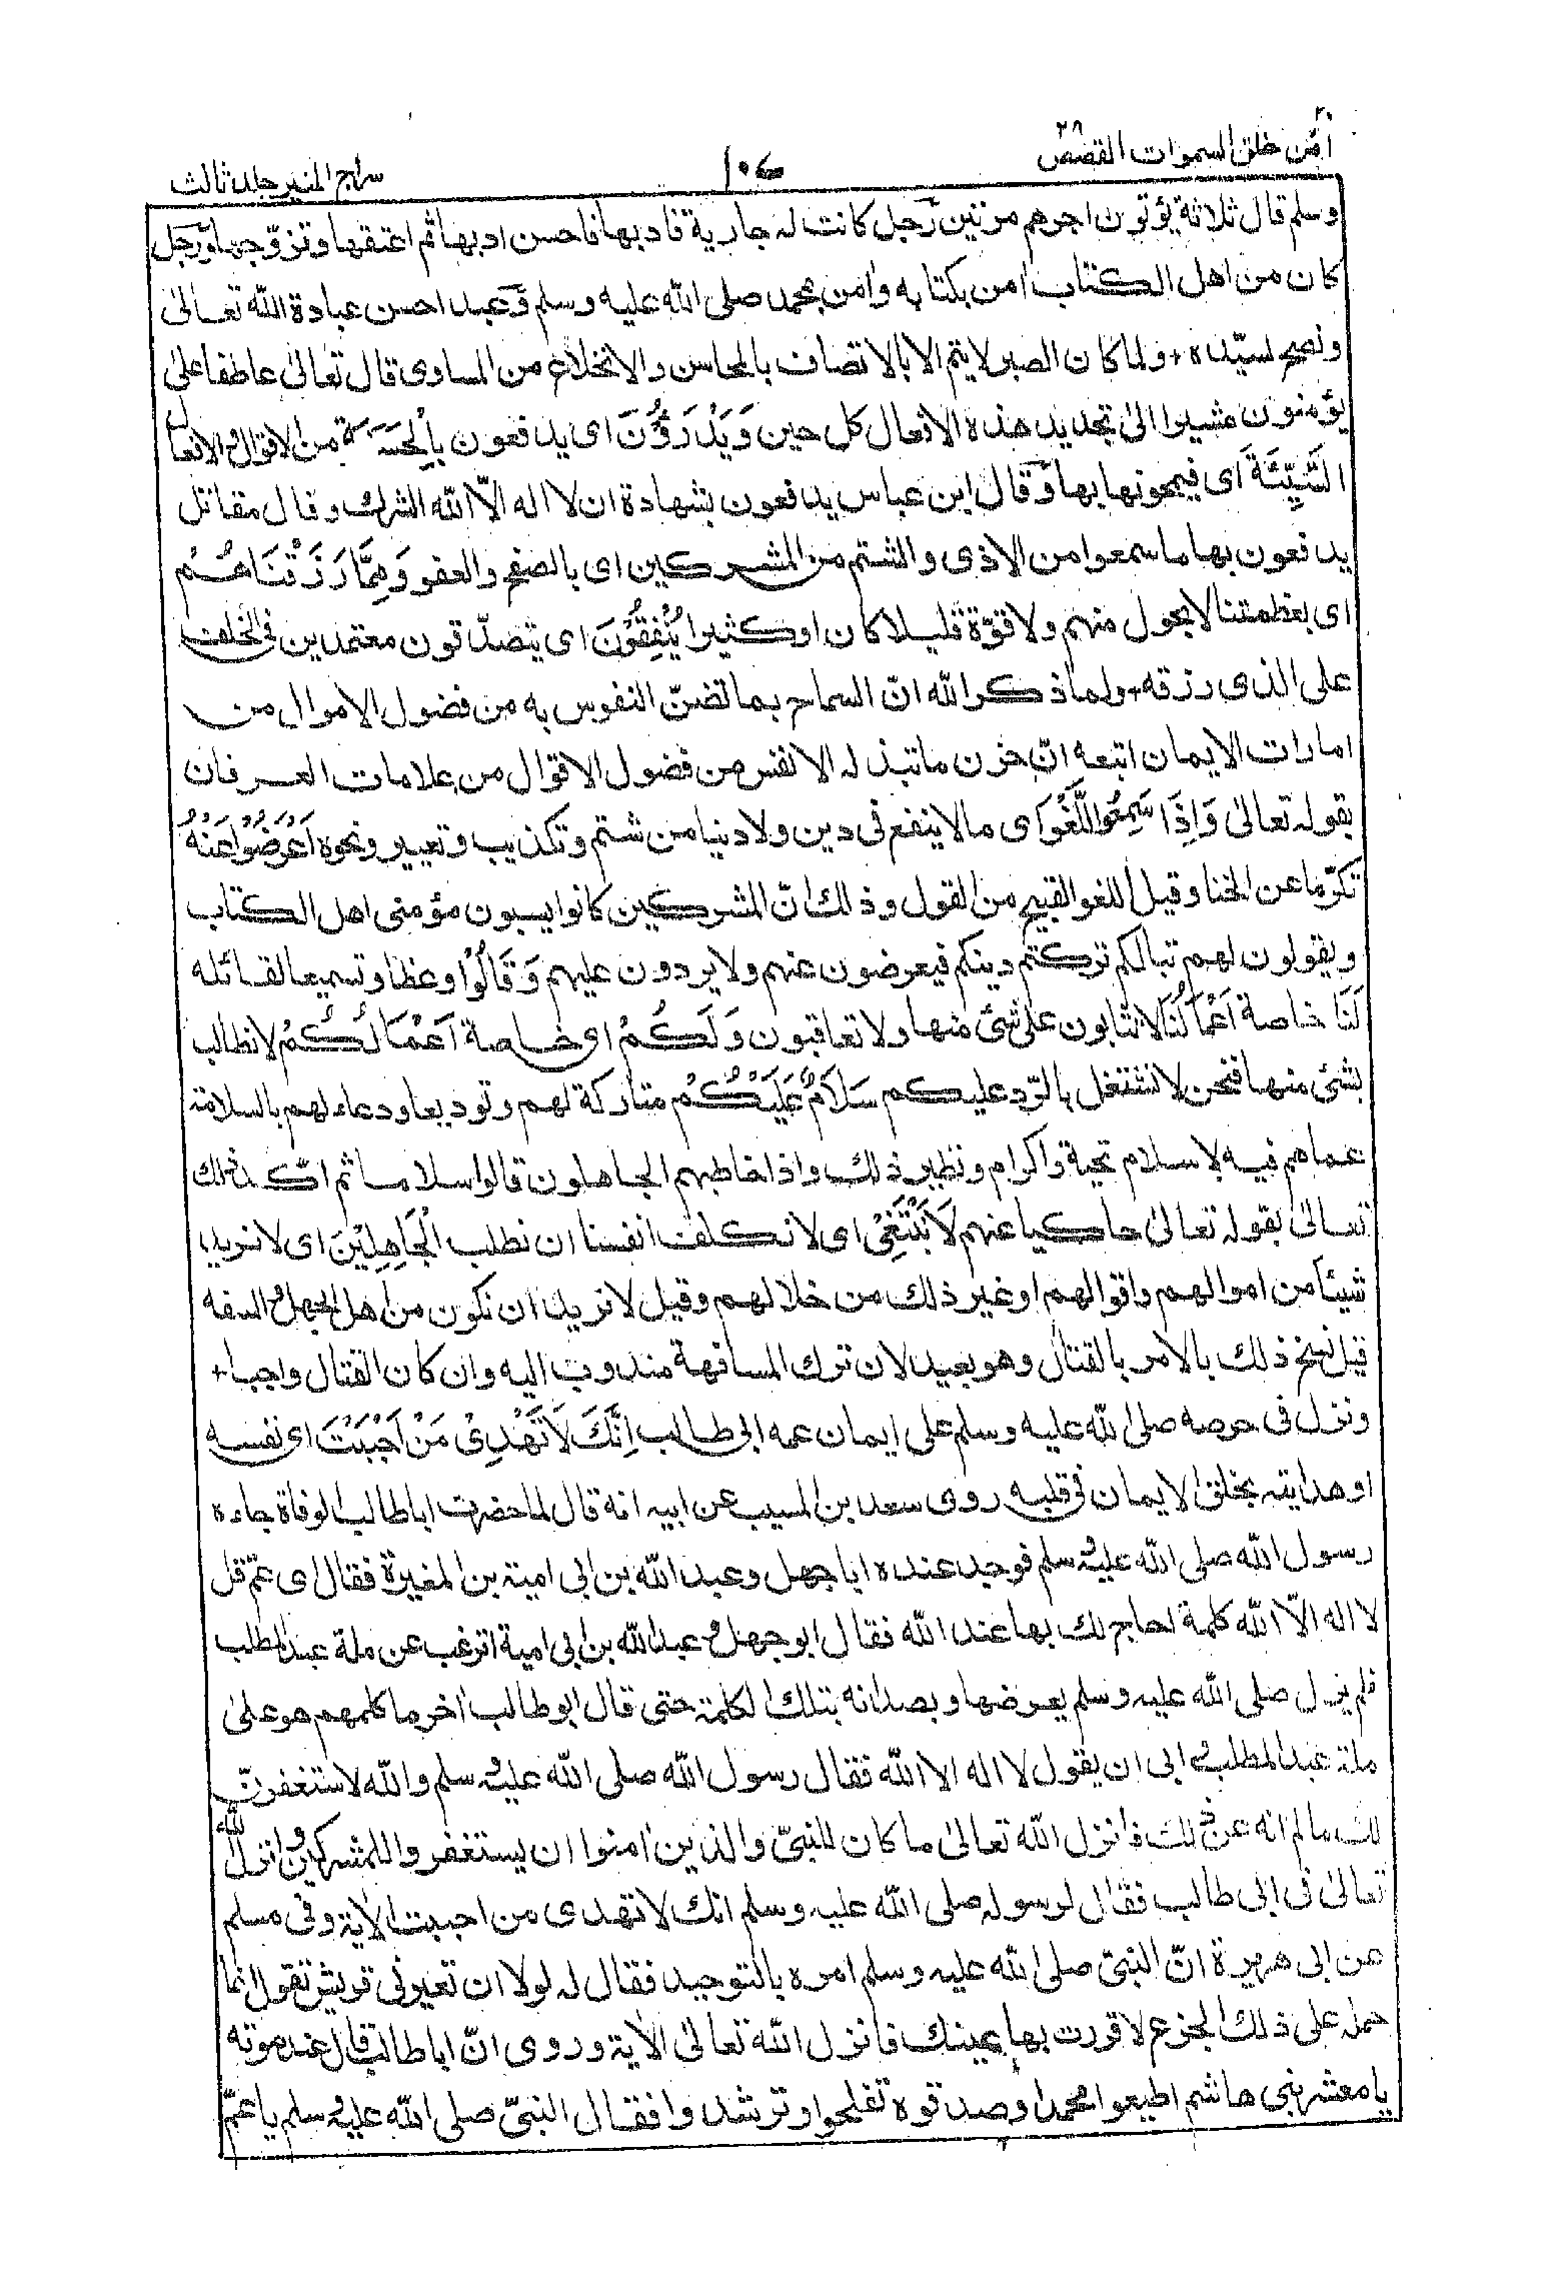 امّن خلق السموات القصص ٢٨
١٠٤
سراج المنیر جلد ثالث
وسلم قال ثلاثة یؤتون اجرهم مرتین رجل کانت له جاریة فادبها فاحسن ادبها ثم اعتقها وتزوّجها ورجل
کان من اهل الکتاب اٰمن بکتابه واٰمن بمحمد صلی الله علیه وسلم وعبد احسن عبادة الله تعالیٰ
ونصح لسیّده + ولما کان الصبر لا یتم الا بالاتصاف بالمحاسن والانخلاع من المساوی قال تعالیٰ عاطفا علی
یؤمنون مشیرا الیٰ تجدید هذه الافعال کل حین وَیَدْرَؤُنَ ای یدفعون بِالْحَسَنَةِ من الاقوال والافعال
السَّیِّئَةَ ای فیمحونها بها وقال ابن عباس یدفعون بشهادة ان لا اله الّا الله الشرک وقال مقاتل
یدفعون بها ما سمعوا من الاذی والشتم من المشرکین ای بالصفح والعفو وَمِمَّا رَزَقْنَاهُمْ
ای بعظمتنا لا بحول منهم ولا قوّة قلیلا کان او کثیرا یُنْفِقُوْنَ ای یتصدّقون معتمدین فی الخلف
علی الذی رزقه + ولما ذکر الله انّ السماح بما تضنّ النفوس به من فضول الاموال من
امارات الایمان اتبعه انّ خزن ما تبذله الانفس من فضول الاقوال من علامات العرفان
بقوله تعالیٰ وَاِذَا سَمِعُوا اللَّغْوَ ای ما لا ینفع فی دین ولا دنیا من شتم وتکذیب وتعییر ونحوه اَعْرَضُوْا عَنْهُ
تکرّما عن الخنا وقیل اللغو القبیح من القول وذلک انّ المشرکین کانوا یسبون مؤمنی اهل الکتاب
ویقولون لهم تبا لکم ترکتم دینکم فیعرضون عنهم ولا یردون علیهم وَقَالُوْا وعظا وتسمیعا لقائله
لَنَا خاصة اَعْمَالُنَا لا نثابون علی شئ منها ولا تعاقبون وَلَکُمْ ای خاصة اَعْمَالُکُمْ لا نطالب
بشئ منها فنحن لا نشتغل بالرّد علیکم سَلَامٌ عَلَیْکُمْ متارکة لهم وتودیعا ودعاء لهم بالسلامة
عما هم فیه لا سلام تحیة واکرام ونظیر ذلک واذا خاطبهم الجاهلون قالوا سلاما ثم اکّد ذلک
تعالیٰ بقوله تعالیٰ حاکیا عنهم لَا نَبْتَغِیْ ای لا نکلف انفسنا ان نطلب الْجَاهِلِیْنَ ای لا نرید
شیئا من اموالهم واقوالهم او غیر ذلک من خلالهم وقیل لا نرید ان نکون من اهل الجهل والسفه
قیل نسخ ذلک بالامر بالقتال وهو بعید لان ترک المسافهة مندوب الیه وان کان القتال واجبا +
ونزل فی حرصه صلی الله علیه وسلم علی ایمان عمه ابی طالب اِنَّکَ لَا تَهْدِیْ مَنْ اَحْبَبْتَ ای نفسه
او هدایته بخلق الایمان فی قلبه روی سعد بن المسیب عن ابیه انه قال لما حضرت ابا طالب الوفاة جاءه
رسول الله صلی الله علیه وسلم فوجد عنده ابا جهل وعبد الله بن ابی امیة بن المغیرة فقال ای عمّ قل
لا اله الّا الله کلمة احاج لک بها عند الله فقال ابو جهل وعبد الله بن ابی امیة اترغب عن ملة عبد المطلب
فلم یزل صلی الله علیه وسلم یعرضها ویصدانه بتلک الکلمة حتی قال ابو طالب اٰخر ما کلمهم هو علیٰ
ملة عبد المطلب وابی ان یقول لا اله الا الله فقال رسول الله صلی الله علیه وسلم والله لاستغفرنّ
لک ما لم انه عن ذلک فانزل الله تعالیٰ ما کان للنبیّ والذین اٰمنوا ان یستغفروا للمشرکین وانزل الله
تعالیٰ فی ابی طالب فقال لرسوله صلی الله علیه وسلم انک لا تهدی من احببت الاٰیة وفی مسلم
عن ابی هریرة انّ النبیّ صلی الله علیه وسلم امره بالتوحید فقال له لولا ان تعیرنی قریش تقول انما
حمله علی ذلک الجزع لاقررت بها عینک فانزل الله تعالیٰ الاٰیة وروی انّ ابا طالب قال عند موته
یا معشر بنی هاشم اطیعوا محمدا وصدقوه تفلحوا وترشدوا فقال النبیّ صلی الله علیه وسلم یا عمّ